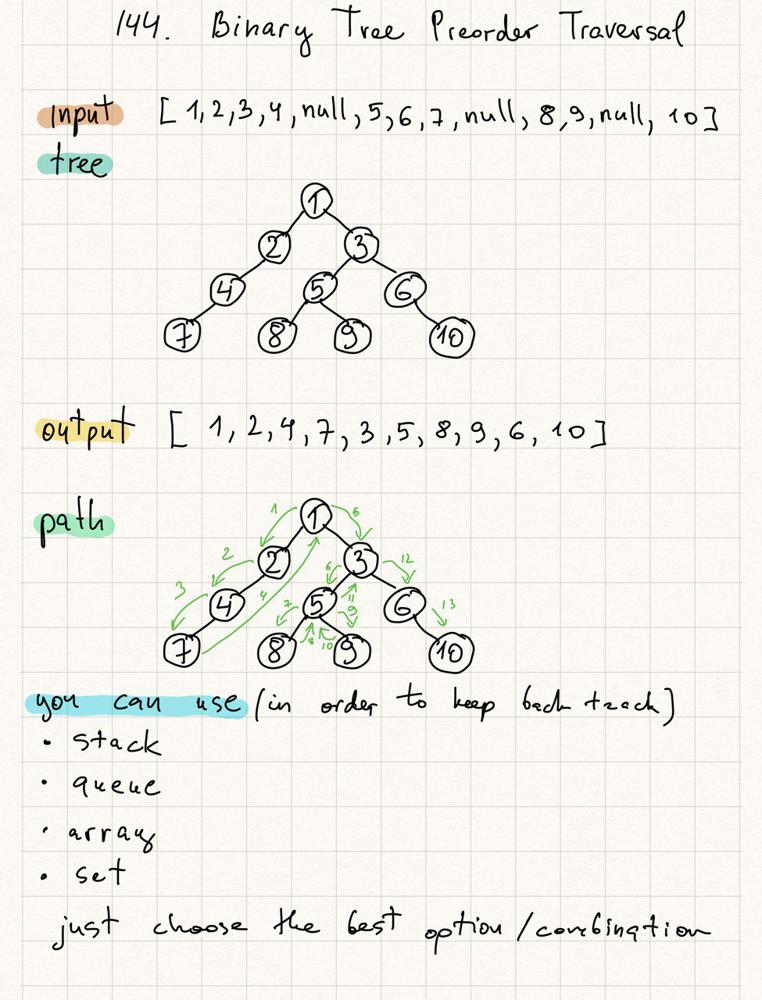 144. Binary Tree Preorder Traversal
input [1,2,3,4,null,5,6,7,null,8,9,null,10]
tree
1
2 3
4 5 6
7 8 9 10
output [1,2,4,7,3,5,8,9,6,10]
path
1 1 5
2 2 6 3 12
3 4 4 7 5 11 9 6 13
7 8 8 10 9 10
you can use (in order to keep back track)
• stack
• queue
• array
• set
just choose the best option/combination